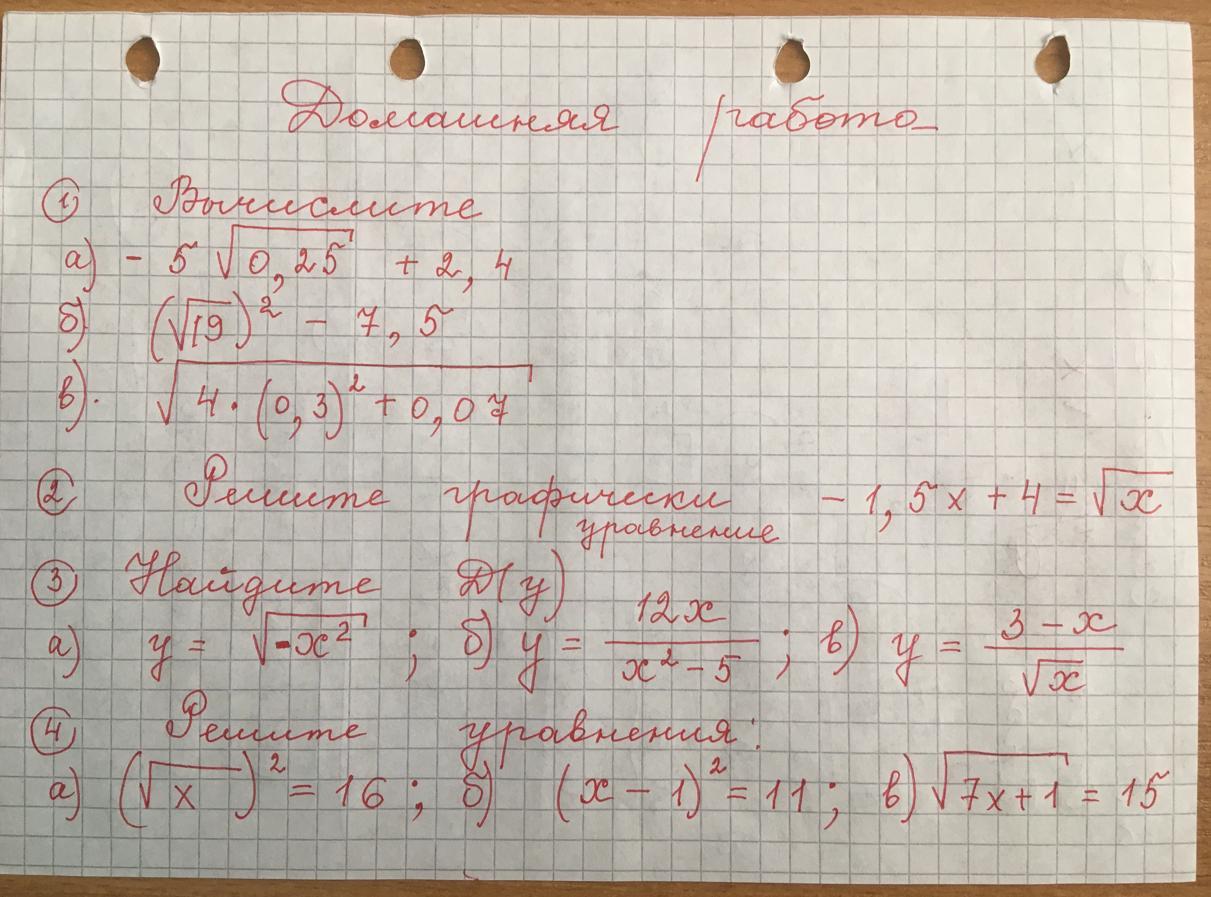 Домашняя работа
① Вычислите
а) - 5 √0,25 + 2,4
б) (√19)² - 7,5
в). √4·(0,3)² + 0,07
② Решите графически - 1,5x + 4 = √x
уравнение
③ Найдите D(y)
а) y = √-x² ; б) y = 12x / x² - 5 ; в) y = 3 - x / √x
④ Решите уравнения:
а) (√x)² = 16 ; б) (x - 1)² = 11 ; в) √7x+1 = 15